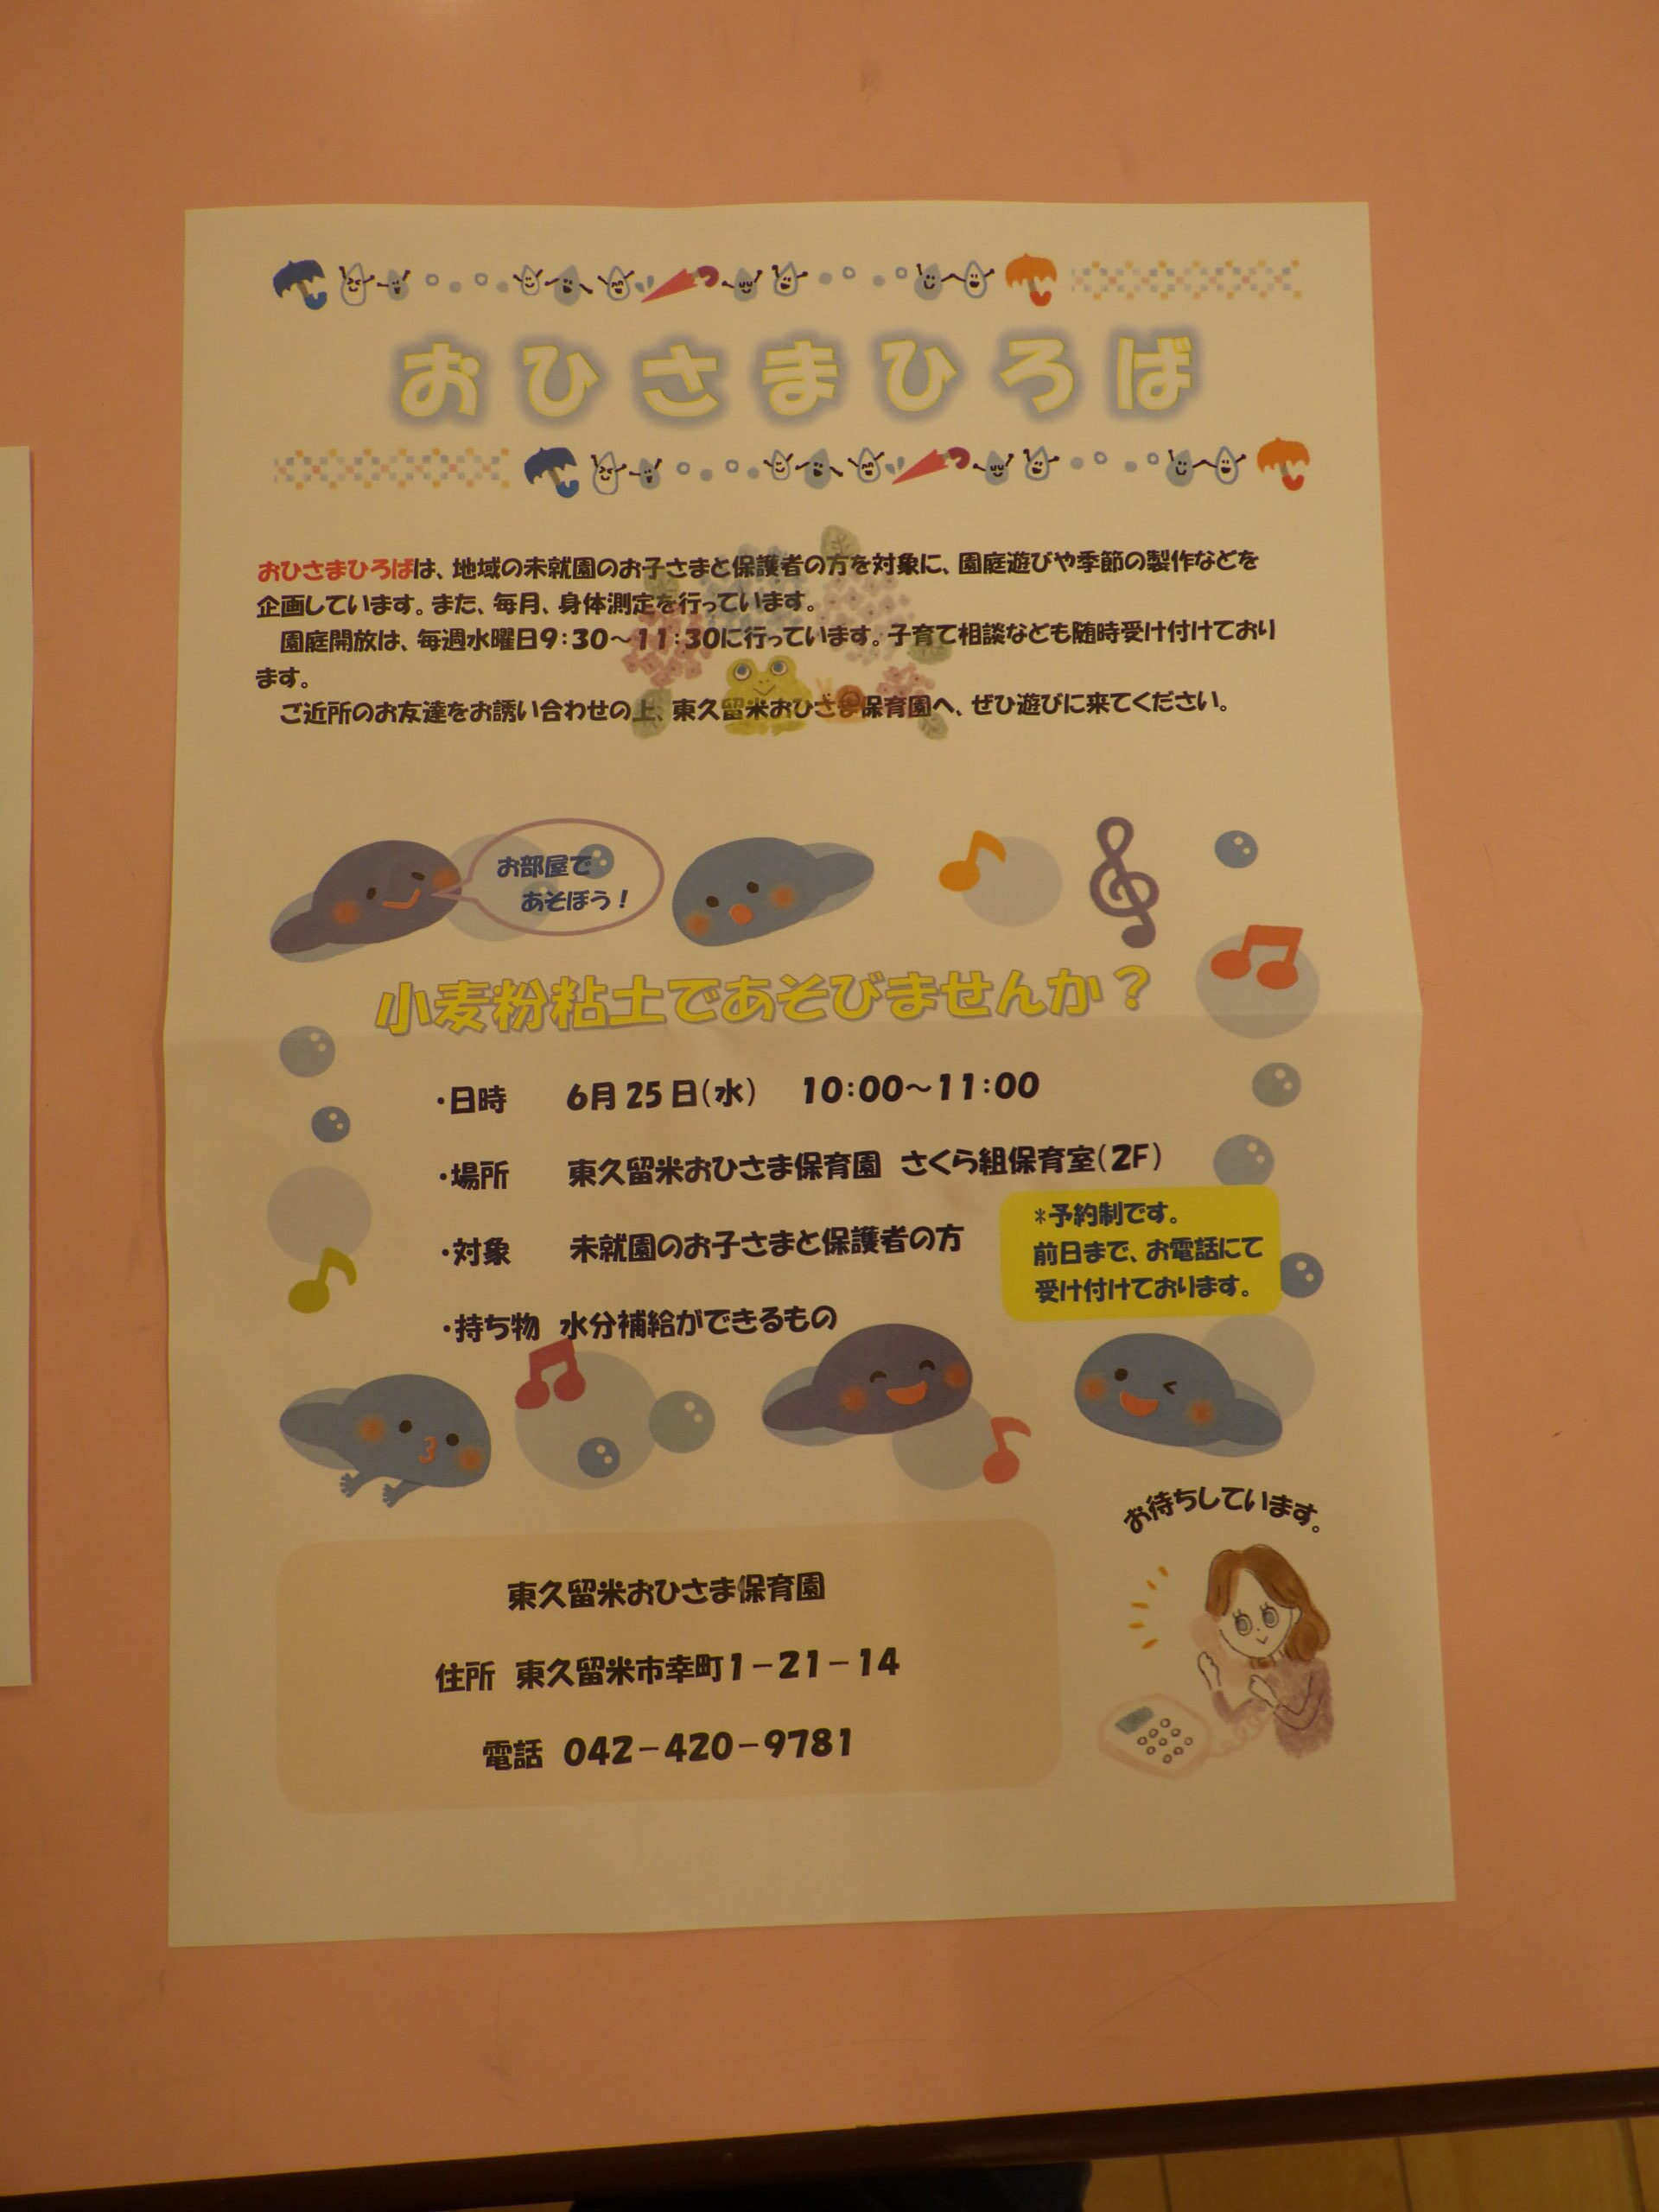 おひさまひろば
おひさまひろばは、地域の未就園のお子さまと保護者の方を対象に、園庭遊びや季節の製作などを
企画しています。また、毎月、身体測定を行っています。
園庭開放は、毎週水曜日9:30～11:30に行っています。子育て相談なども随時受け付けており
ます。
ご近所のお友達をお誘い合わせの上、東久留米おひさま保育園へ、ぜひ遊びに来てください。
お部屋で
あそぼう！
小麦粉粘土であそびませんか？
・日時 6月25日(水) 10:00～11:00
・場所 東久留米おひさま保育園 さくら組保育室(2F)
・対象 未就園のお子さまと保護者の方
＊予約制です。
前日まで、お電話にて
受け付けております。
・持ち物 水分補給ができるもの
お待ちしています。
東久留米おひさま保育園
住所 東久留米市幸町1－21－14
電話 042－420－9781